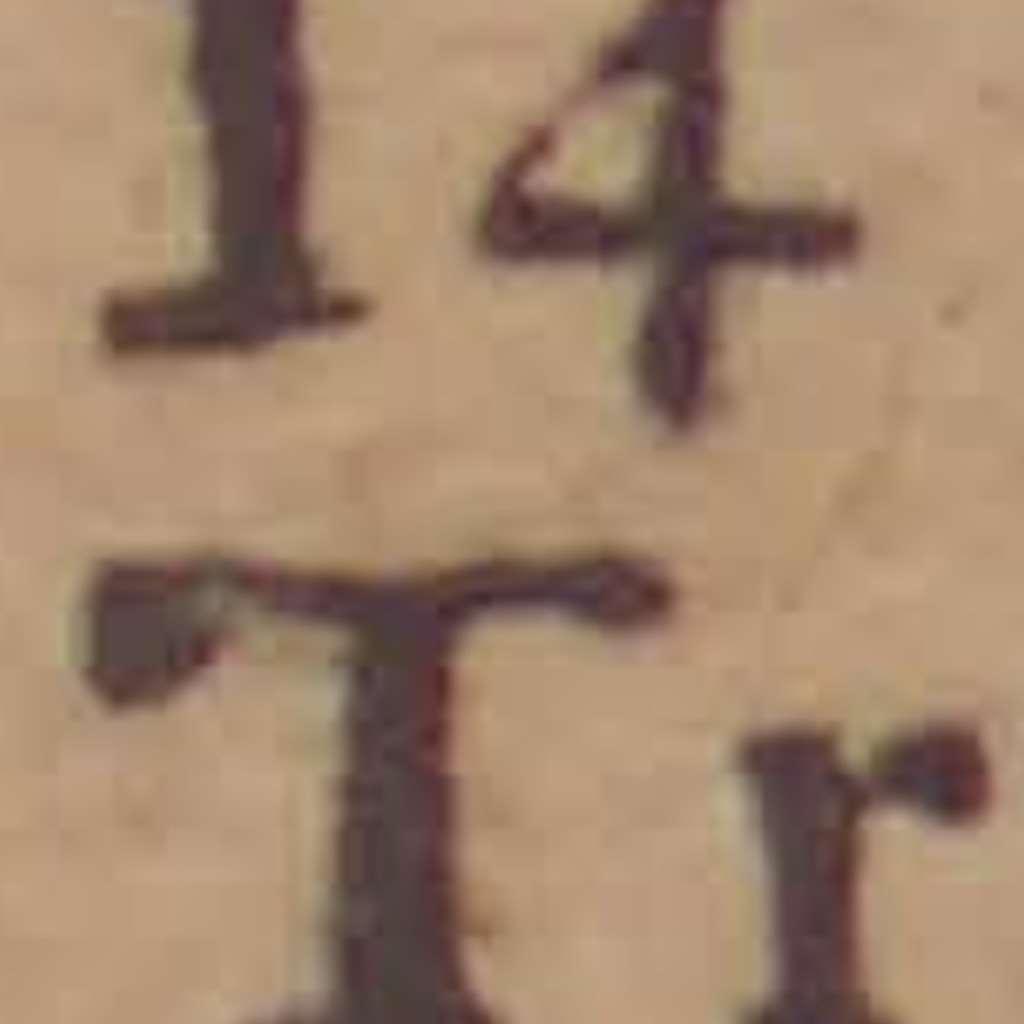 14
Tr